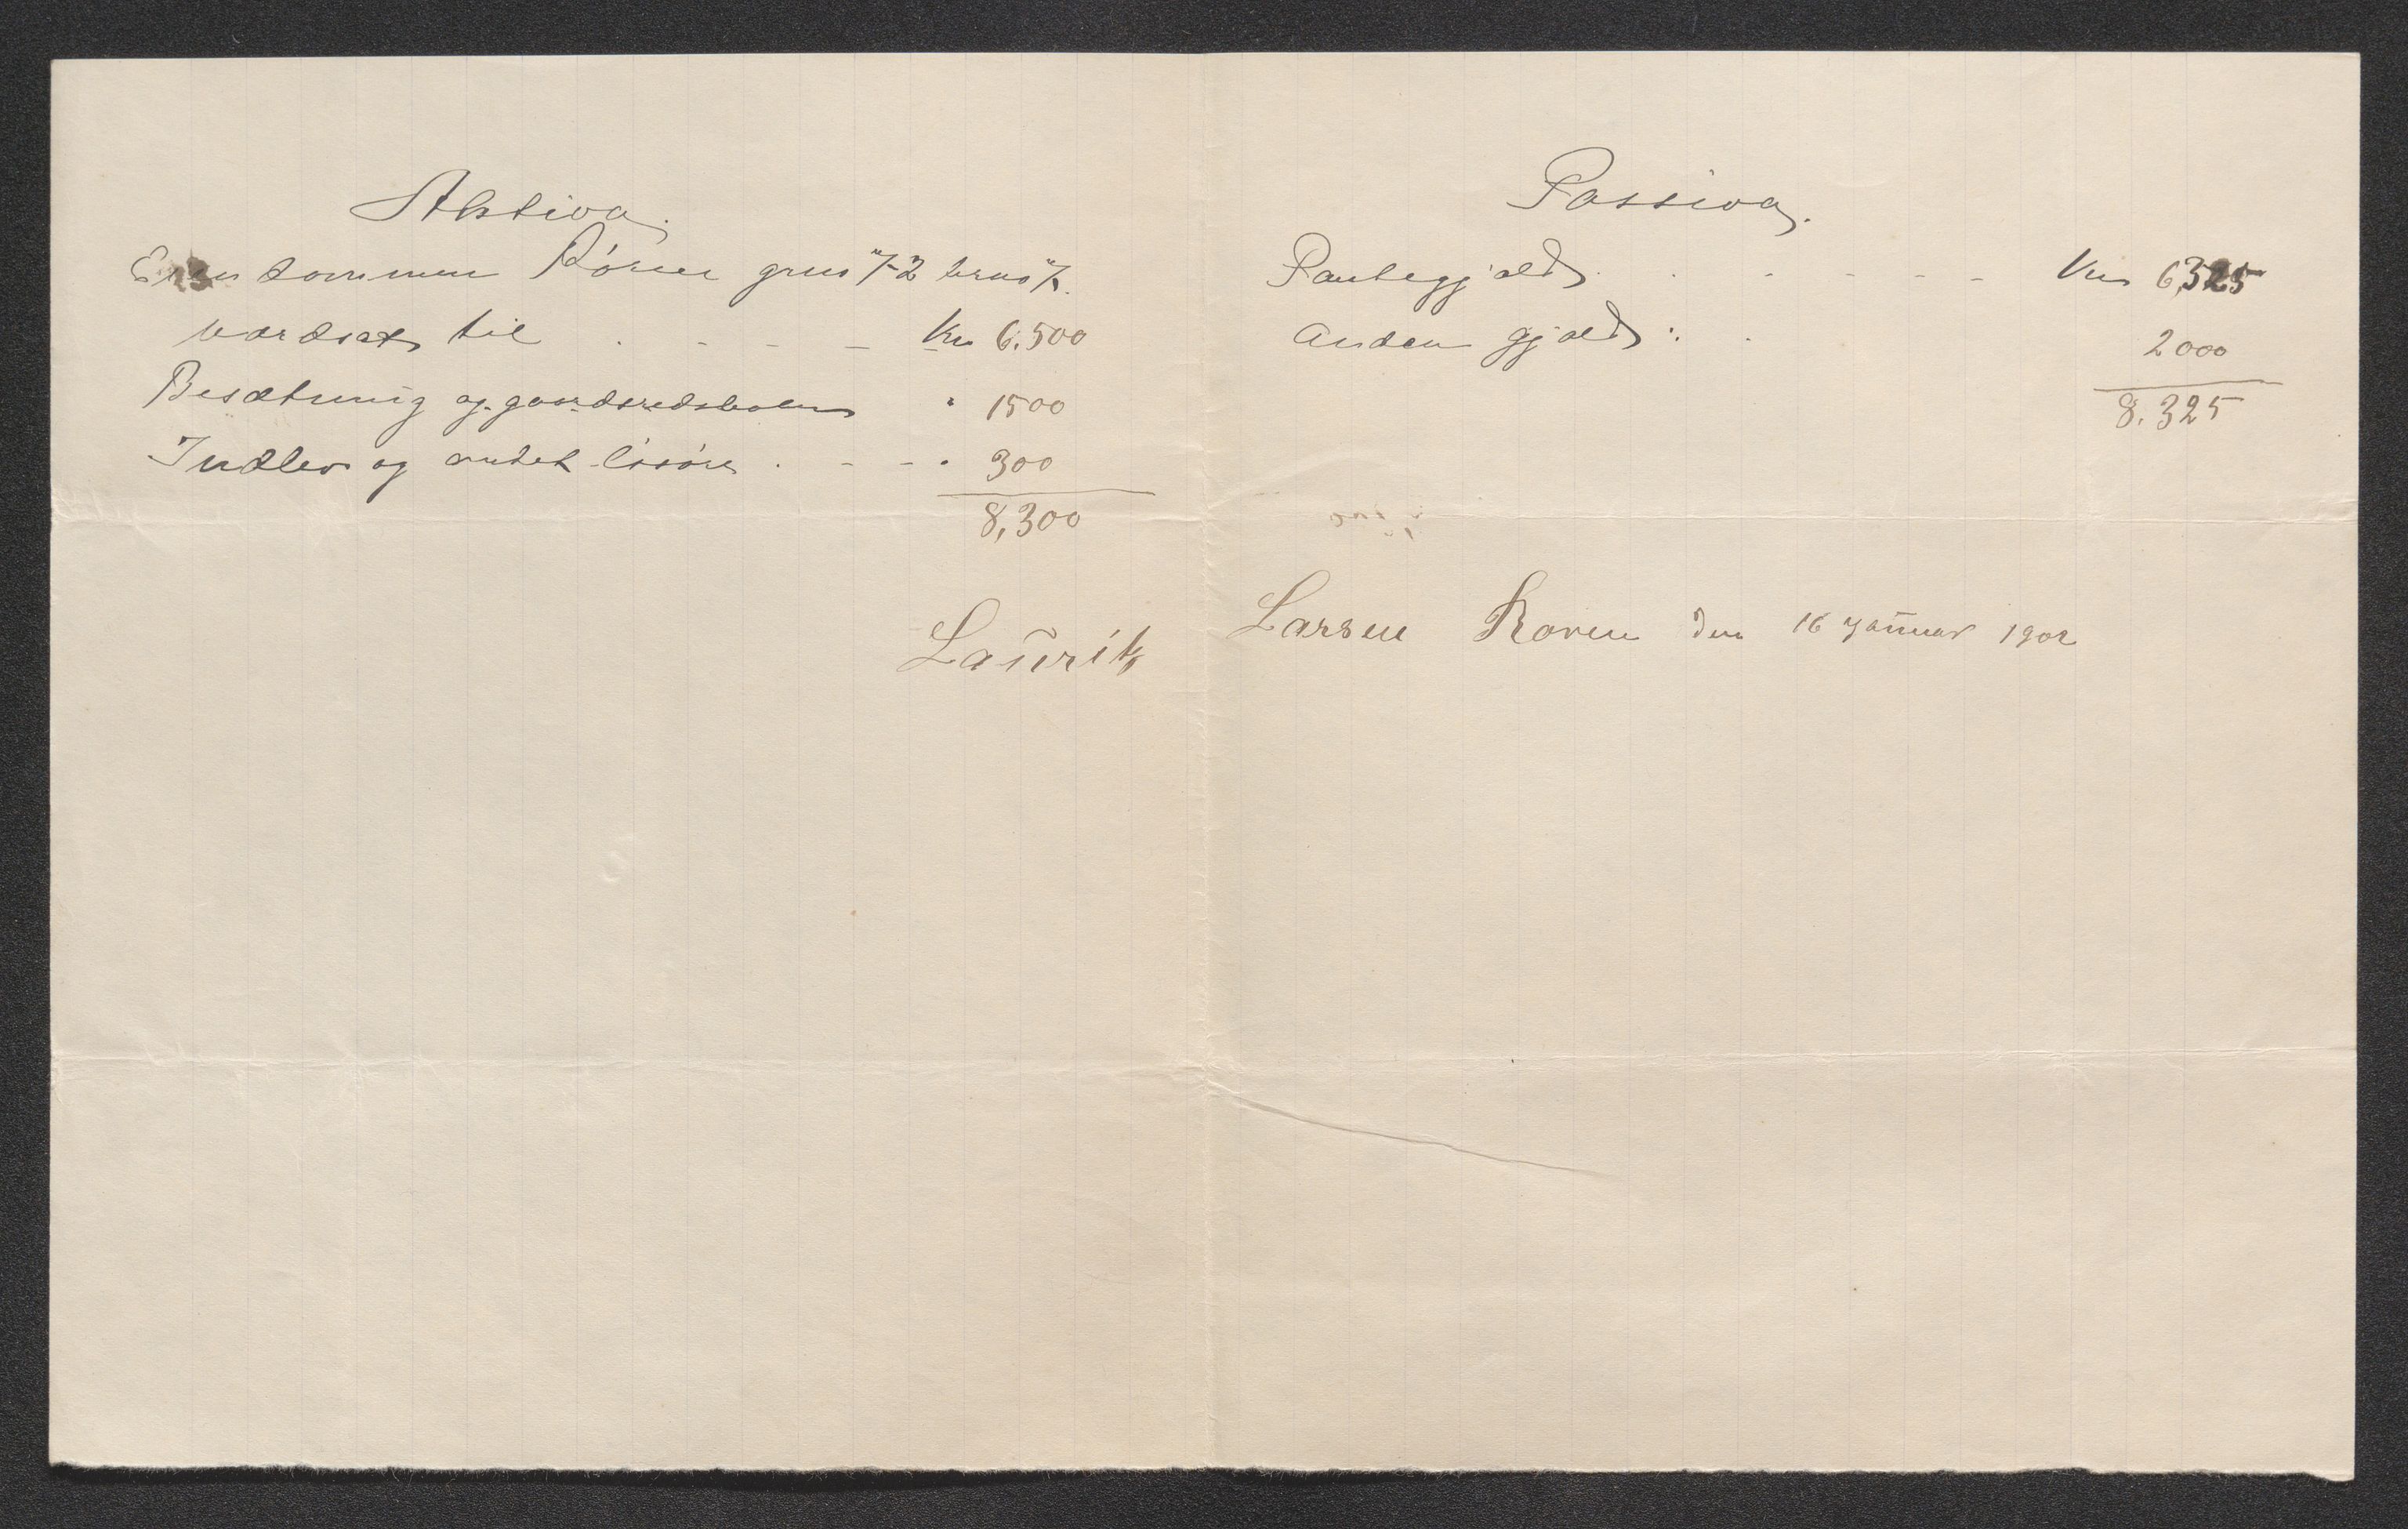 Aktiva.
Eiendommen Røren gnus 72 brus 7.
værdsat til . - - - Kr 6.500
Besætning og gaardsredskaber " 1500
Indbo og andet løsøre . - - " 300
8,300
Passiva.
Pantegjæld . . - - - Kr 6,325
Anden gjæld : . 2000
8.325
Laurits Larsen Roren den 16 januar 1902